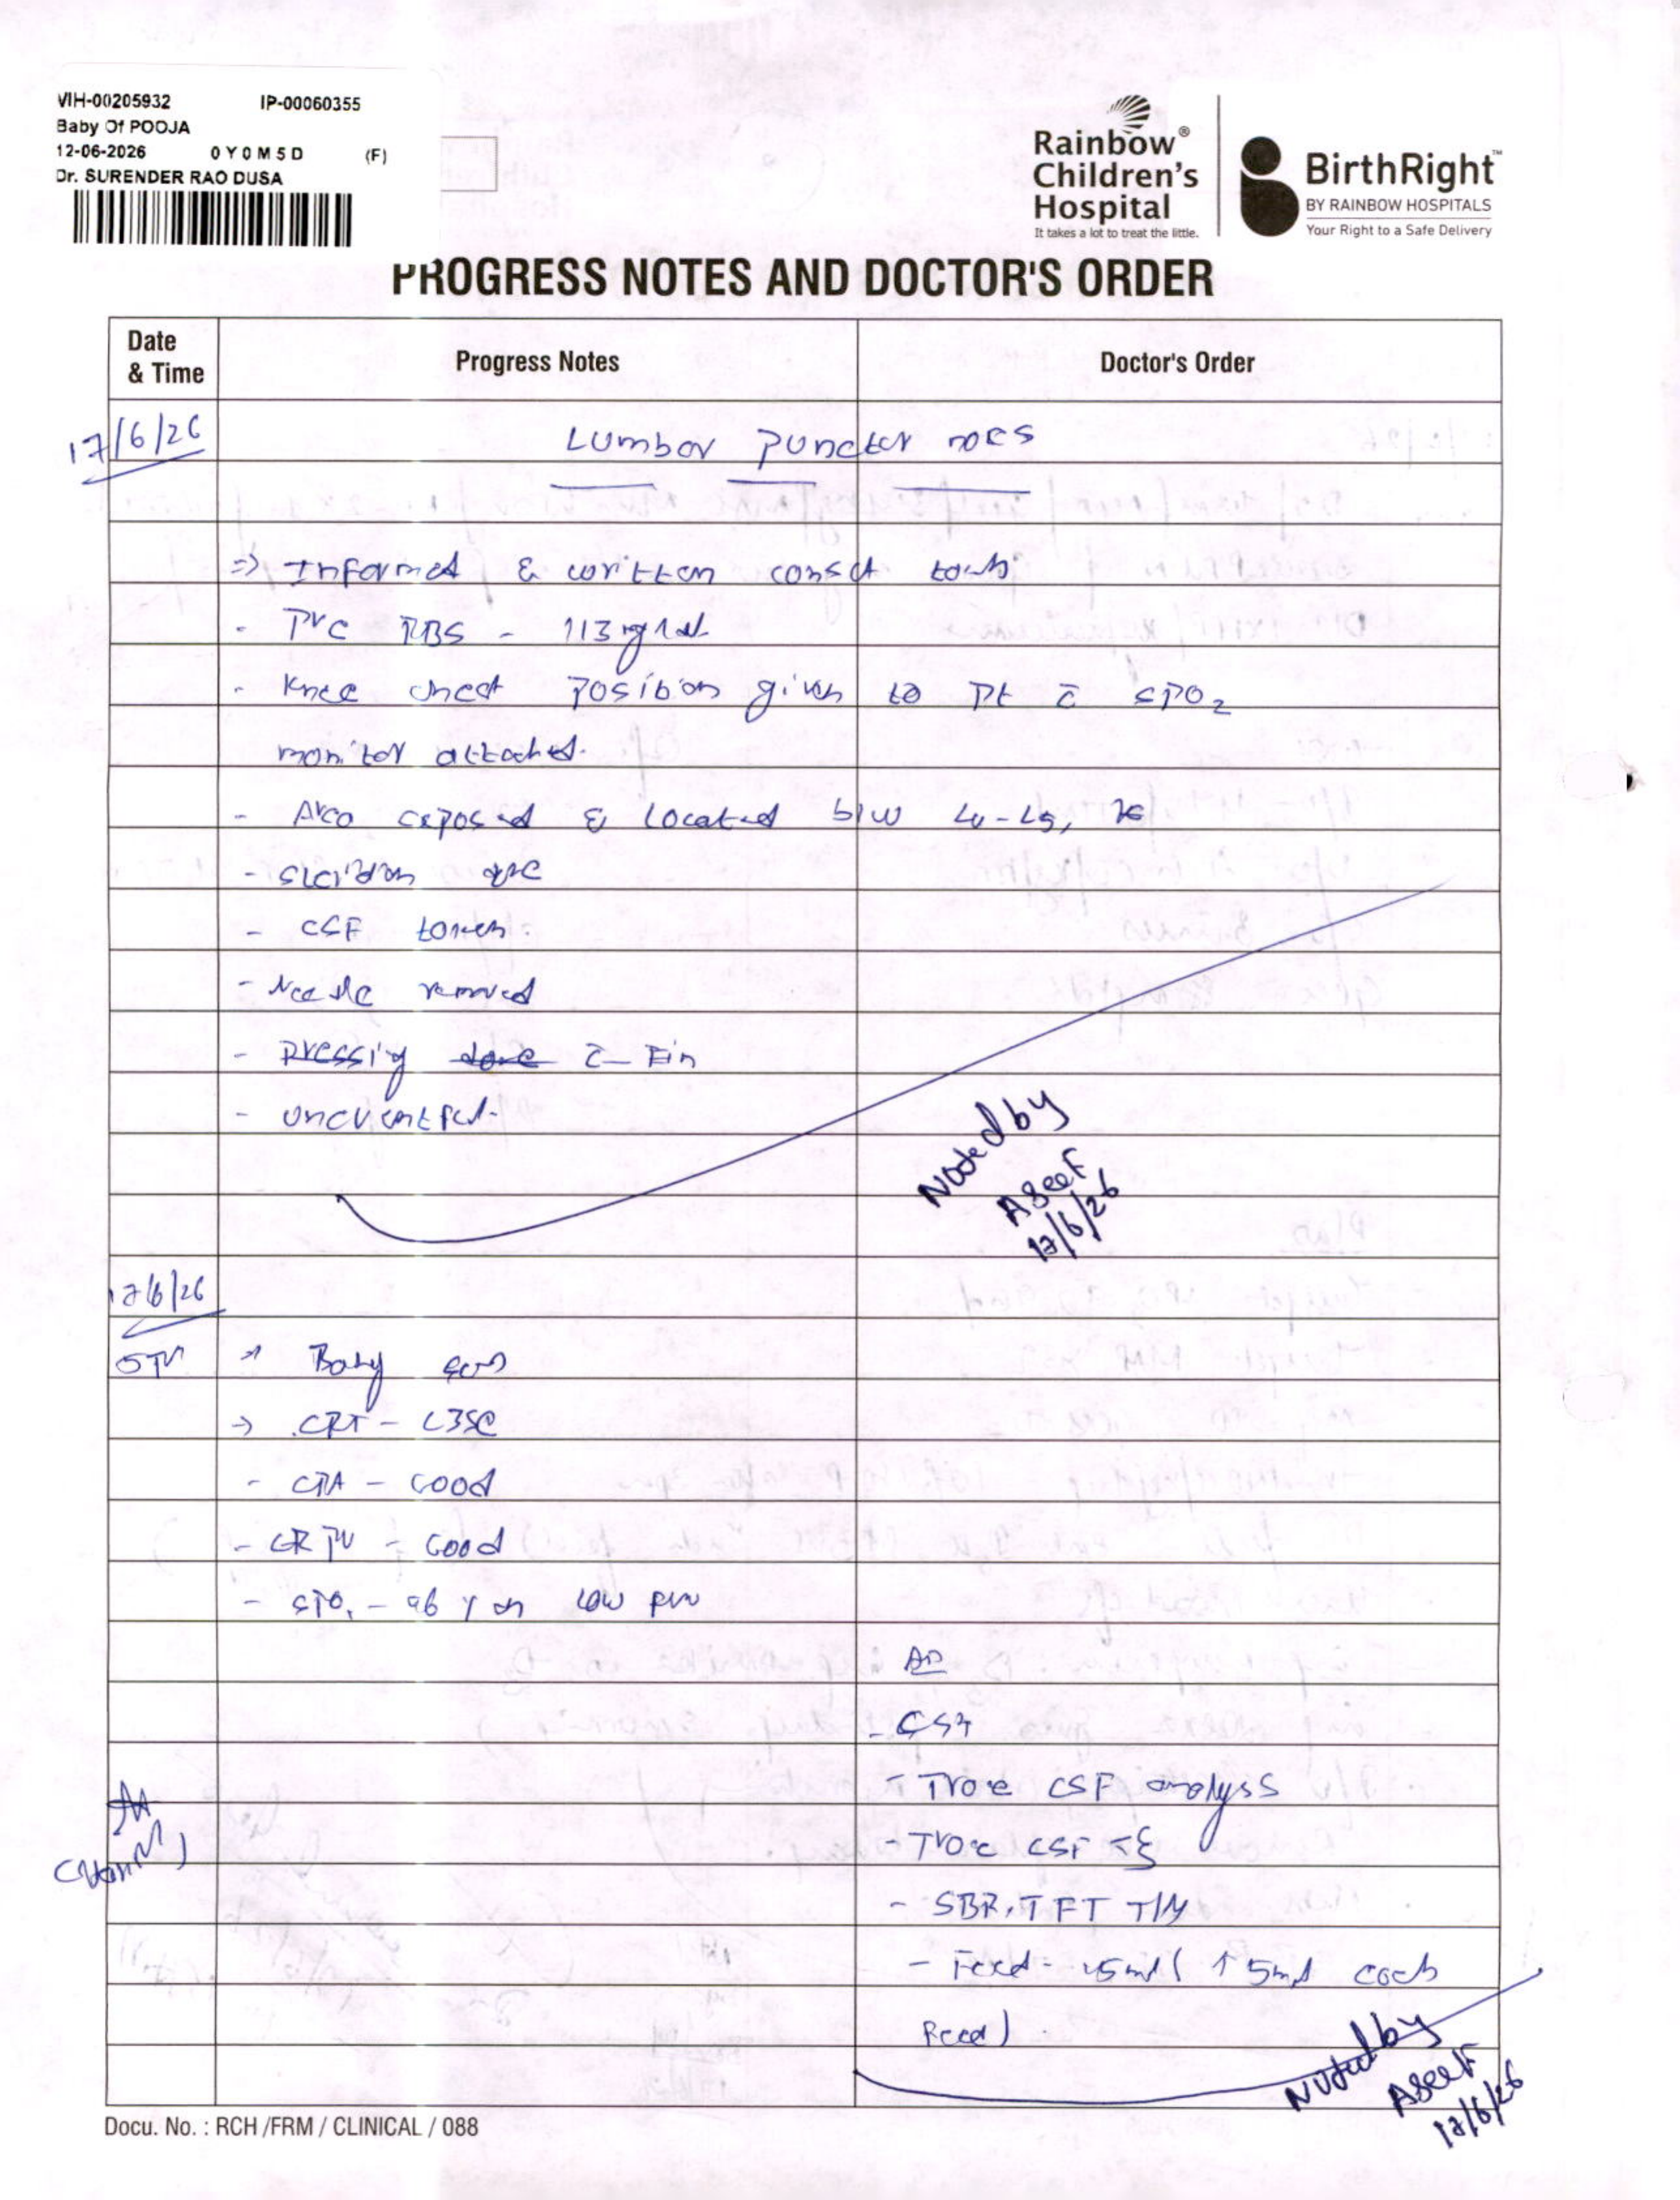 VIH-00205932 IP-00060355
Baby Of POOJA
12-06-2026 0 Y 0 M 5 D (F)
Dr. SURENDER RAO DUSA
Rainbow®
Children's
Hospital
It takes a lot to treat the little.
BirthRight™
BY RAINBOW HOSPITALS
Your Right to a Safe Delivery
PROGRESS NOTES AND DOCTOR'S ORDER
Date & Time Progress Notes Doctor's Order
17/6/26 Lumbar Punctur
=> Informed & written
- RBS - 113 mg/dl
- Knee chest Position given to Pt c̄ SPO2
monitor attached.
- Area exposed & located b/w L4-L5,
- CSF taken.
- Needle removed
- Pressing done c̄
- uneventful.
Noted by
Aseef
17/6/26
17/6/26
5PM Baby
-> CRT - <3se
- CTA - Good
- Good
- SPO2 - 96 % on low
- Trace CSF analyss
- Trace CSF
- SBR, TFT T/M
- Feed - 15ml ( ↑ 5ml each
Feed)
Noted by
Aseef
17/6/26
Docu. No. : RCH /FRM / CLINICAL / 088